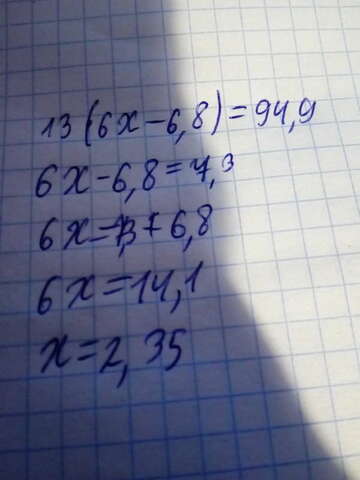 13(6x-6,8)=94,9
6x-6,8=7,3
6x=7,3+6,8
6x=14,1
x=2,35